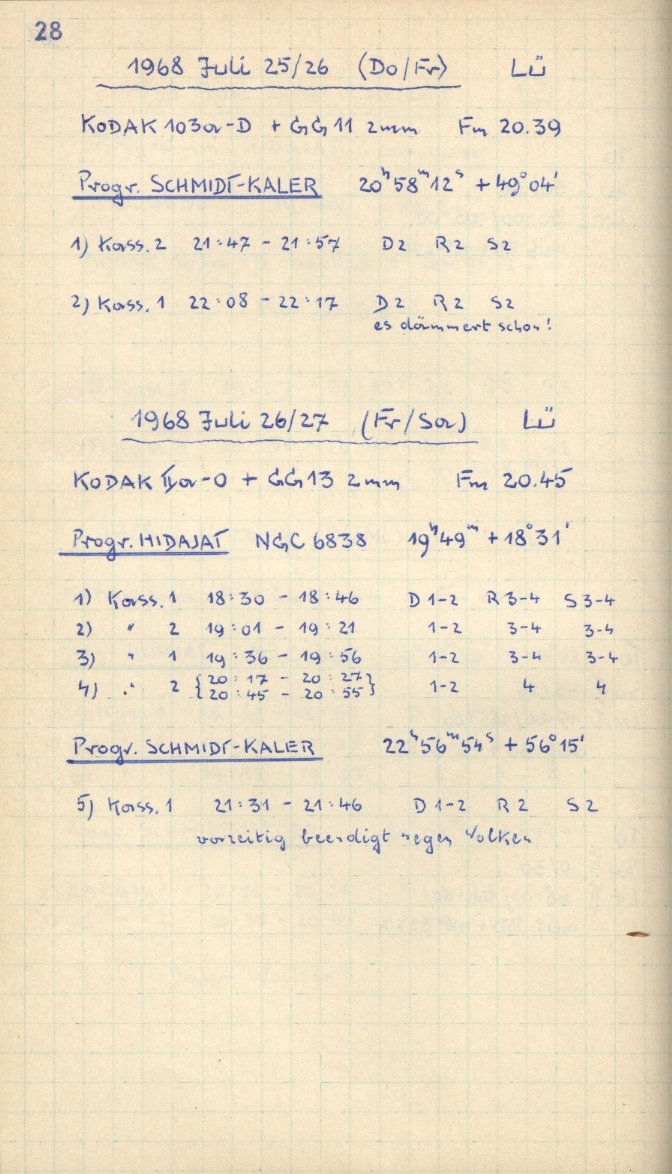 28
1968 Juli 25/26 (Do/Fr) LÜ
KODAK 103a-D + GG11 2mm Fm 20.39
Progr. SCHMIDT-KALER 20ʰ58ᵐ12ˢ +49°04'
1) Kass. 2 21:47 - 21:57 D2 R2 S2
2) Kass. 1 22:08 - 22:17 D2 R2 S2
es dämmert schon!
1968 Juli 26/27 (Fr/Sa) LÜ
KODAK IIa-O + GG13 2mm Fm 20.45
Progr. HIDAJAT NGC 6838 19ʰ49ᵐ +18°31'
1) Kass. 1 18:30 - 18:46 D 1-2 R 3-4 S 3-4
2) " 2 19:01 - 19:21 1-2 3-4 3-4
3) " 1 19:36 - 19:56 1-2 3-4 3-4
4) " 2 {20:17 - 20:27} 1-2 4 4
{20:45 - 20:55}
Progr. SCHMIDT-KALER 22ʰ56ᵐ54ˢ +56°15'
5) Kass. 1 21:31 - 21:46 D 1-2 R 2 S 2
vorzeitig beendigt wegen Wolken